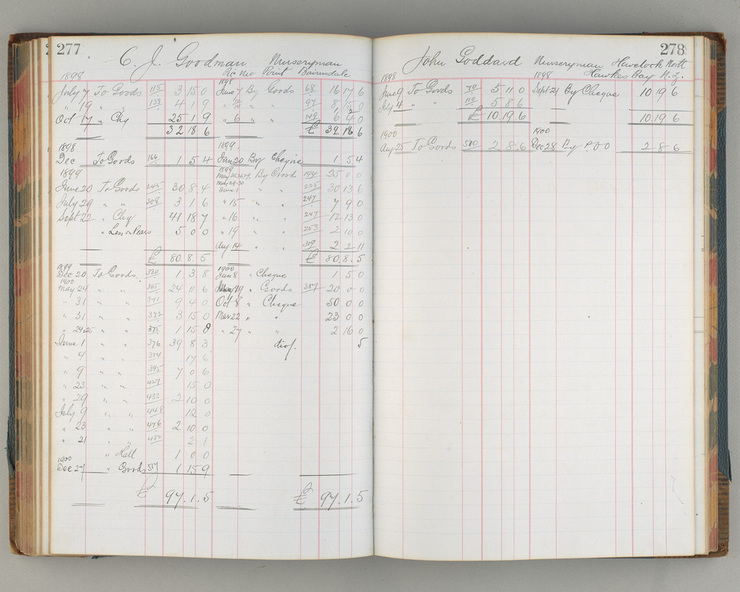 277
C. J. Goodman Nurseryman
Pic Nic Point Bairnsdale
1898 1898
July 7 To Goods 3 15 0 June 7 By Goods 68 16 17 6
" 19 " " 4 1 9
Oct 17 " Chq 25 1 9 " 6 " "
32 18 6 £ 32 18 6
1898 1899
Dec To Goods 1 5 4 Jan 20 By Cheque 1 5 4
1899 1899
June 20 To Goods 30 8 4 By Goods 25 0 0
30 13 6
July 29 " " 208 3 1 6 " 15 " " 247 7 9 0
Sept 22 " Chq 41 18 7 " 16 " " 247 12 13 0
5 0 0 " 19 " " 253 2 10 0
Aug 14 " " 2 2 11
£ 80. 8. 5 £ 80. 8. 5
1899 1900
Dec 20 To Goods 1 3 8 Jan 8 " Cheque 1 5 0
1900
May 24 " " 24 8 6 May 19 " Goods 357 20 0 0
" 31 " " 9 4 0 Oct 8 " Cheque 50 0 0
" 31 " " 337 3 15 0 Nov 22 " " 23 0 0
" 24 25 " " 375 1 15 8 " 27 " " 2 16 0
June 1 " " 376 39 8 3 5
" 4 " " 384 17 6
" 9 " " 395 7 0 6
" 23 " " 15 0
" 29 " " 2 10 0
July 9 " " 448 12 0
" 23 " " 476 2 10 0
" 21 " " 2 1
" 1 0 0
1900
Dec 27 " Goods 1 15 9
£ 97. 1. 5 £ 97. 1. 5
278
John Goddard Nurseryman Havelock Nth
Hawkes Bay N.Z.
1898 1898
June 9 To Goods 5 11 0 Sept 21 By Cheque 10 19 6
" 4 " " 5 8 6
£ 10. 19. 6 10 19 6
1900 1900
Aug 25 To Goods 500 2 8 6 Dec 28 By P.O.O 2 8 6